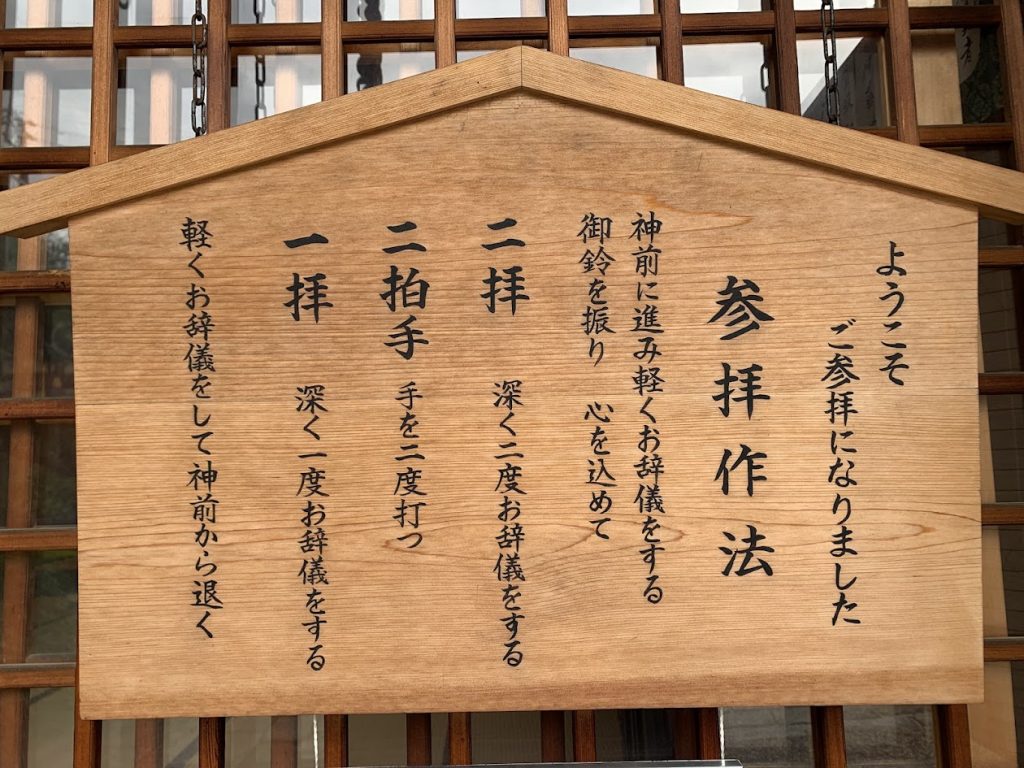 ようこそ
ご参拝になりました
参拝作法
神前に進み軽くお辞儀をする
御鈴を振り　心を込めて
二拝　深く二度お辞儀をする
二拍手　手を二度打つ
一拝　深く一度お辞儀をする
軽くお辞儀をして神前から退く